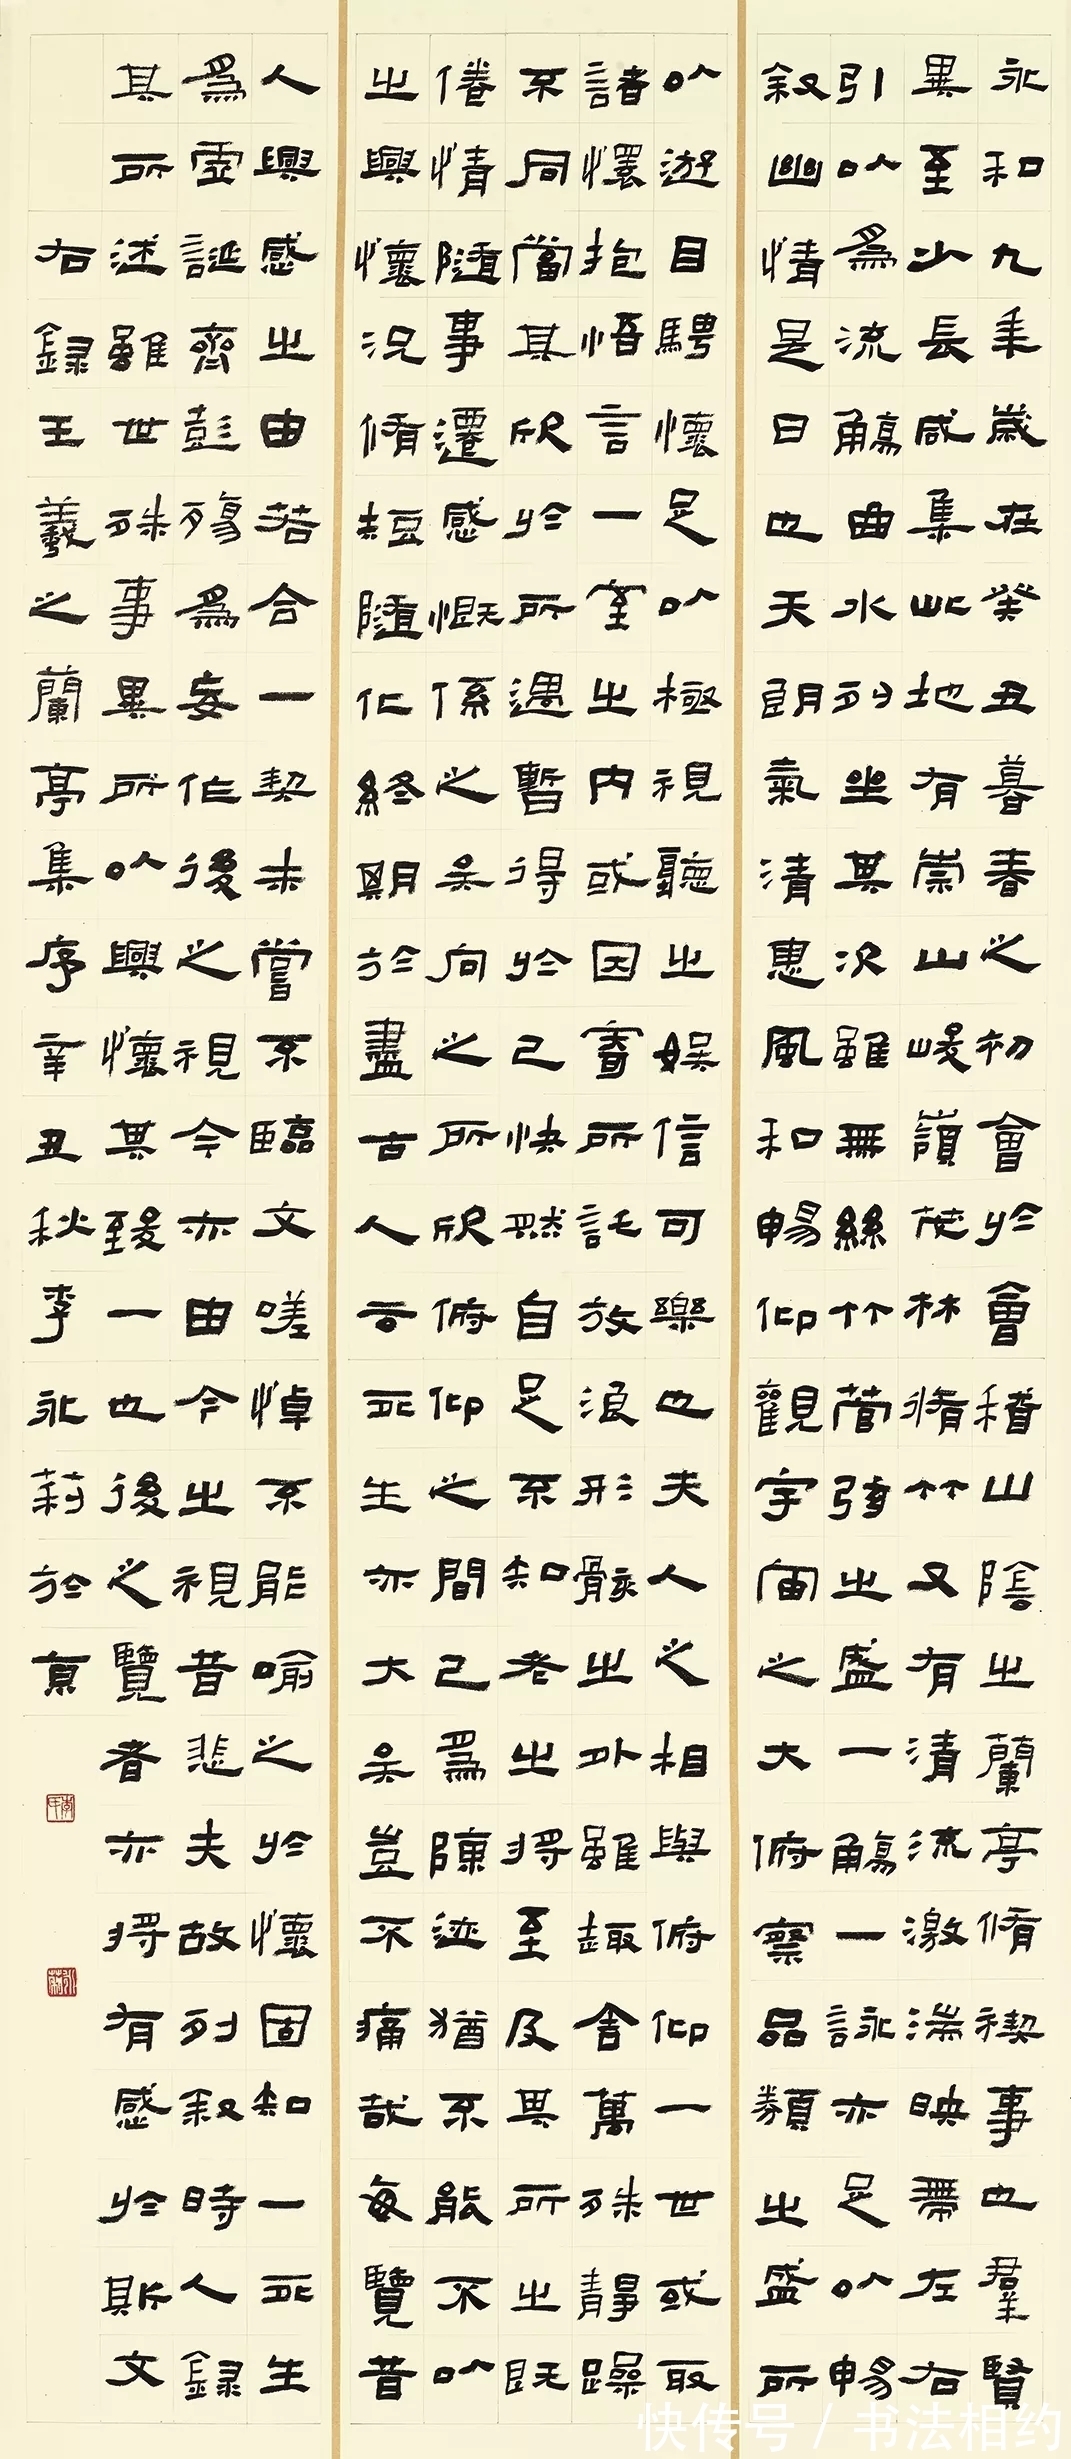 永和九年歲在癸丑暮春之初會於會稽山陰之蘭亭脩禊事也羣賢
畢至少長咸集此地有崇山峻嶺茂林脩竹又有清流激湍映帶左右
引以為流觴曲水列坐其次雖無絲竹管弦之盛一觴一詠亦足以暢
敘幽情是日也天朗氣清惠風和暢仰觀宇宙之大俯察品類之盛所
以遊目騁懷足以極視聽之娛信可樂也夫人之相與俯仰一世或取
諸懷抱悟言一室之內或因寄所託放浪形骸之外雖趣舍萬殊靜躁
不同當其欣於所遇暫得於己快然自足不知老之將至及其所之既
倦情隨事遷感慨係之矣向之所欣俯仰之間已為陳迹猶不能不以
之興懷況脩短隨化終期於盡古人云死生亦大矣豈不痛哉每覽昔
人興感之由若合一契未嘗不臨文嗟悼不能喻之於懷固知一死生
為虛誕齊彭殤為妄作後之視今亦由今之視昔悲夫故列敘時人錄
其所述雖世殊事異所以興懷其致一也後之覽者亦將有感於斯文
右錄王羲之蘭亭集序辛丑秋李永莉於京
快传号/书法相约